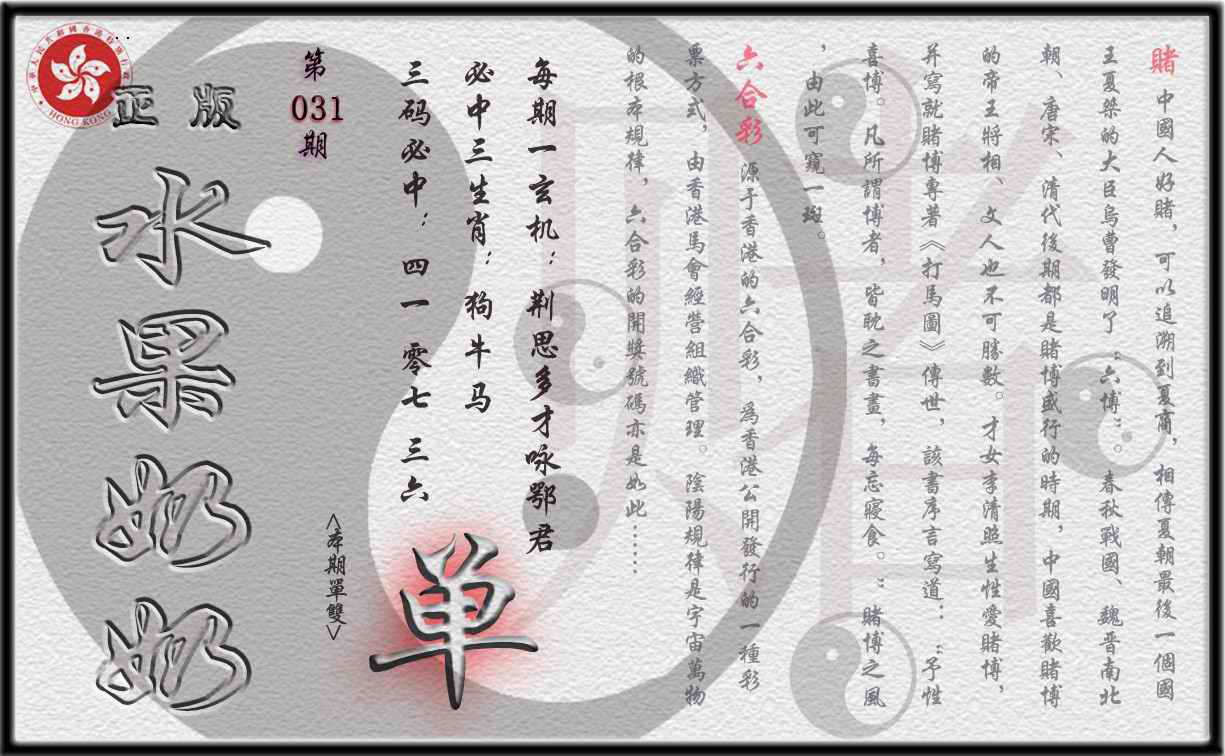 賭 中國人好賭，可以追溯到夏商，相傳夏朝最後一個國
王夏桀的大臣烏曹發明了“六博”。春秋戰國、魏晋南北
朝、唐宋、清代後期都是賭博盛行的時期，中國喜歡賭博
的帝王將相、文人也不可勝數。才女李清照生性愛賭博，
并寫就賭博專著《打馬圖》傳世，該書序言寫道：“予性
喜博。凡所謂博者，皆耽之書畫，每忘寢食。”賭博之風
，由此可窺一斑。
六合彩 源于香港的六合彩，爲香港公開發行的一種彩
票方式，由香港馬會經營組織管理。陰陽規律是宇宙萬物
的根本規律，六合彩的開獎號碼亦是如此……
每期一玄机：荆思多才咏鄂君
必中三生肖：狗牛马
三码必中：四一 零七 三六
第
031
期
<本期單雙>
单
正版
水果奶奶
HONG KONG